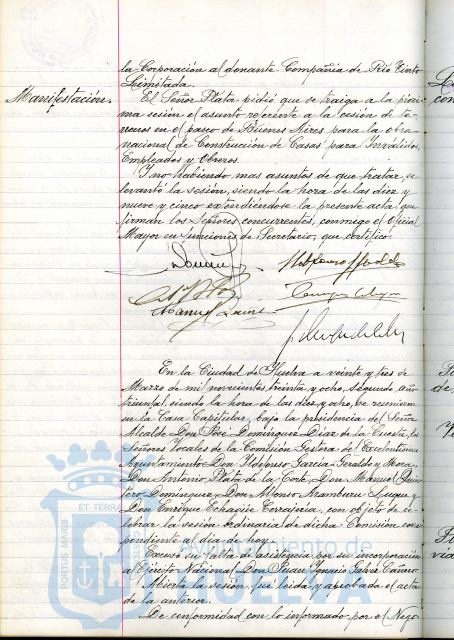 la Corporación al donante Compañia de Rio Tinto
Limitada.
Manifestación. El Señor Plata pidió que se traiga a la próxi-
ma sesión el asunto referente a la cesión de te-
rrenos en el paseo de Buenos Aires para la obra
nacional de Construcción de Casas para Inválidos,
Empleados y Obreros.
Y no habiendo mas asuntos de que tratar, se
levantó la sesión, siendo la hora de las diez y
nueve y cinco extendiéndose la presente acta que
firman los Señores concurrentes, conmigo el Oficial
Mayor en funciones de Secretario, que certifico.
En la Ciudad de Huelva a veinte y tres de
Marzo de mil novecientos treinta y ocho, segundo año
triunfal, siendo la hora de las diez y ocho, se reunieron
en la Casa Capitular, bajo la presidencia del Señor
Alcalde Don José Domínguez Díaz de la Cuesta, los
Señores Vocales de la Comisión Gestora del Excelentísimo
Ayuntamiento Don Ildefonso García-Geraldo y Mora,
Don Antonio Plata de la Corte, Don Manuel Quin-
tero Domínguez, Don Alfonso Aramburu Luque y
Don Enrique Echaguie Terrajería, con objeto de ce-
lebrar la sesión ordinaria de dicha Comisión corres-
pondiente al día de hoy.
Excusó su falta de asistencia por su incorporación
al Ejército Nacional Don Juan Ignacio Galvé Cañero
Abierta la sesión, fué leida y aprobada el acta
de la anterior.
De conformidad con lo informado por el Nego-
PORTUS MARIS ET TERRAE
Ayuntamiento de
HUELVA